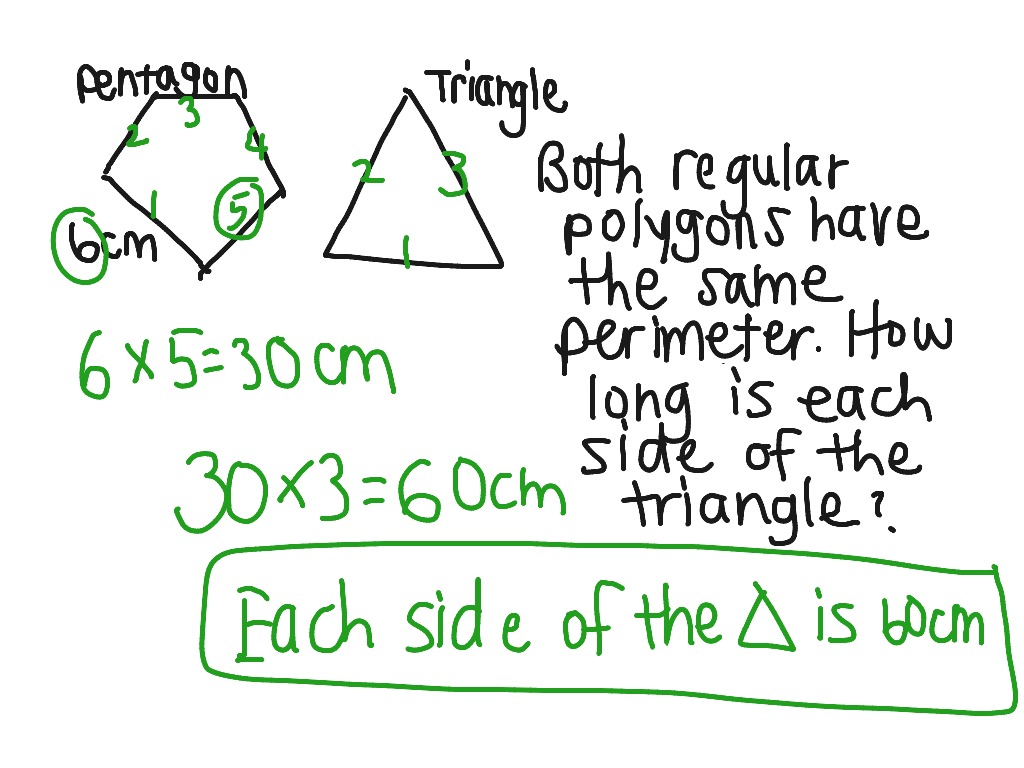 Pentagon
3
2
4
1
5
6cm
Triangle
2
3
1
Both regular
polygons have
the same
perimeter. How
long is each
side of the
triangle?
6 x 5 = 30 cm
30 x 3 = 60cm
Each side of the △ is 60cm